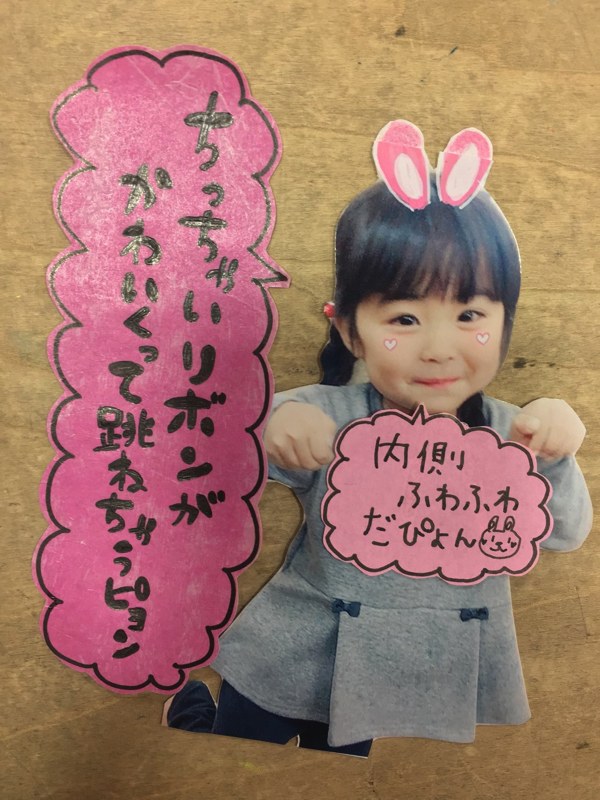 ちっちゃいリボンが
かわいくって跳ねちゃうピョン
内側
ふわふわ
だぴょん